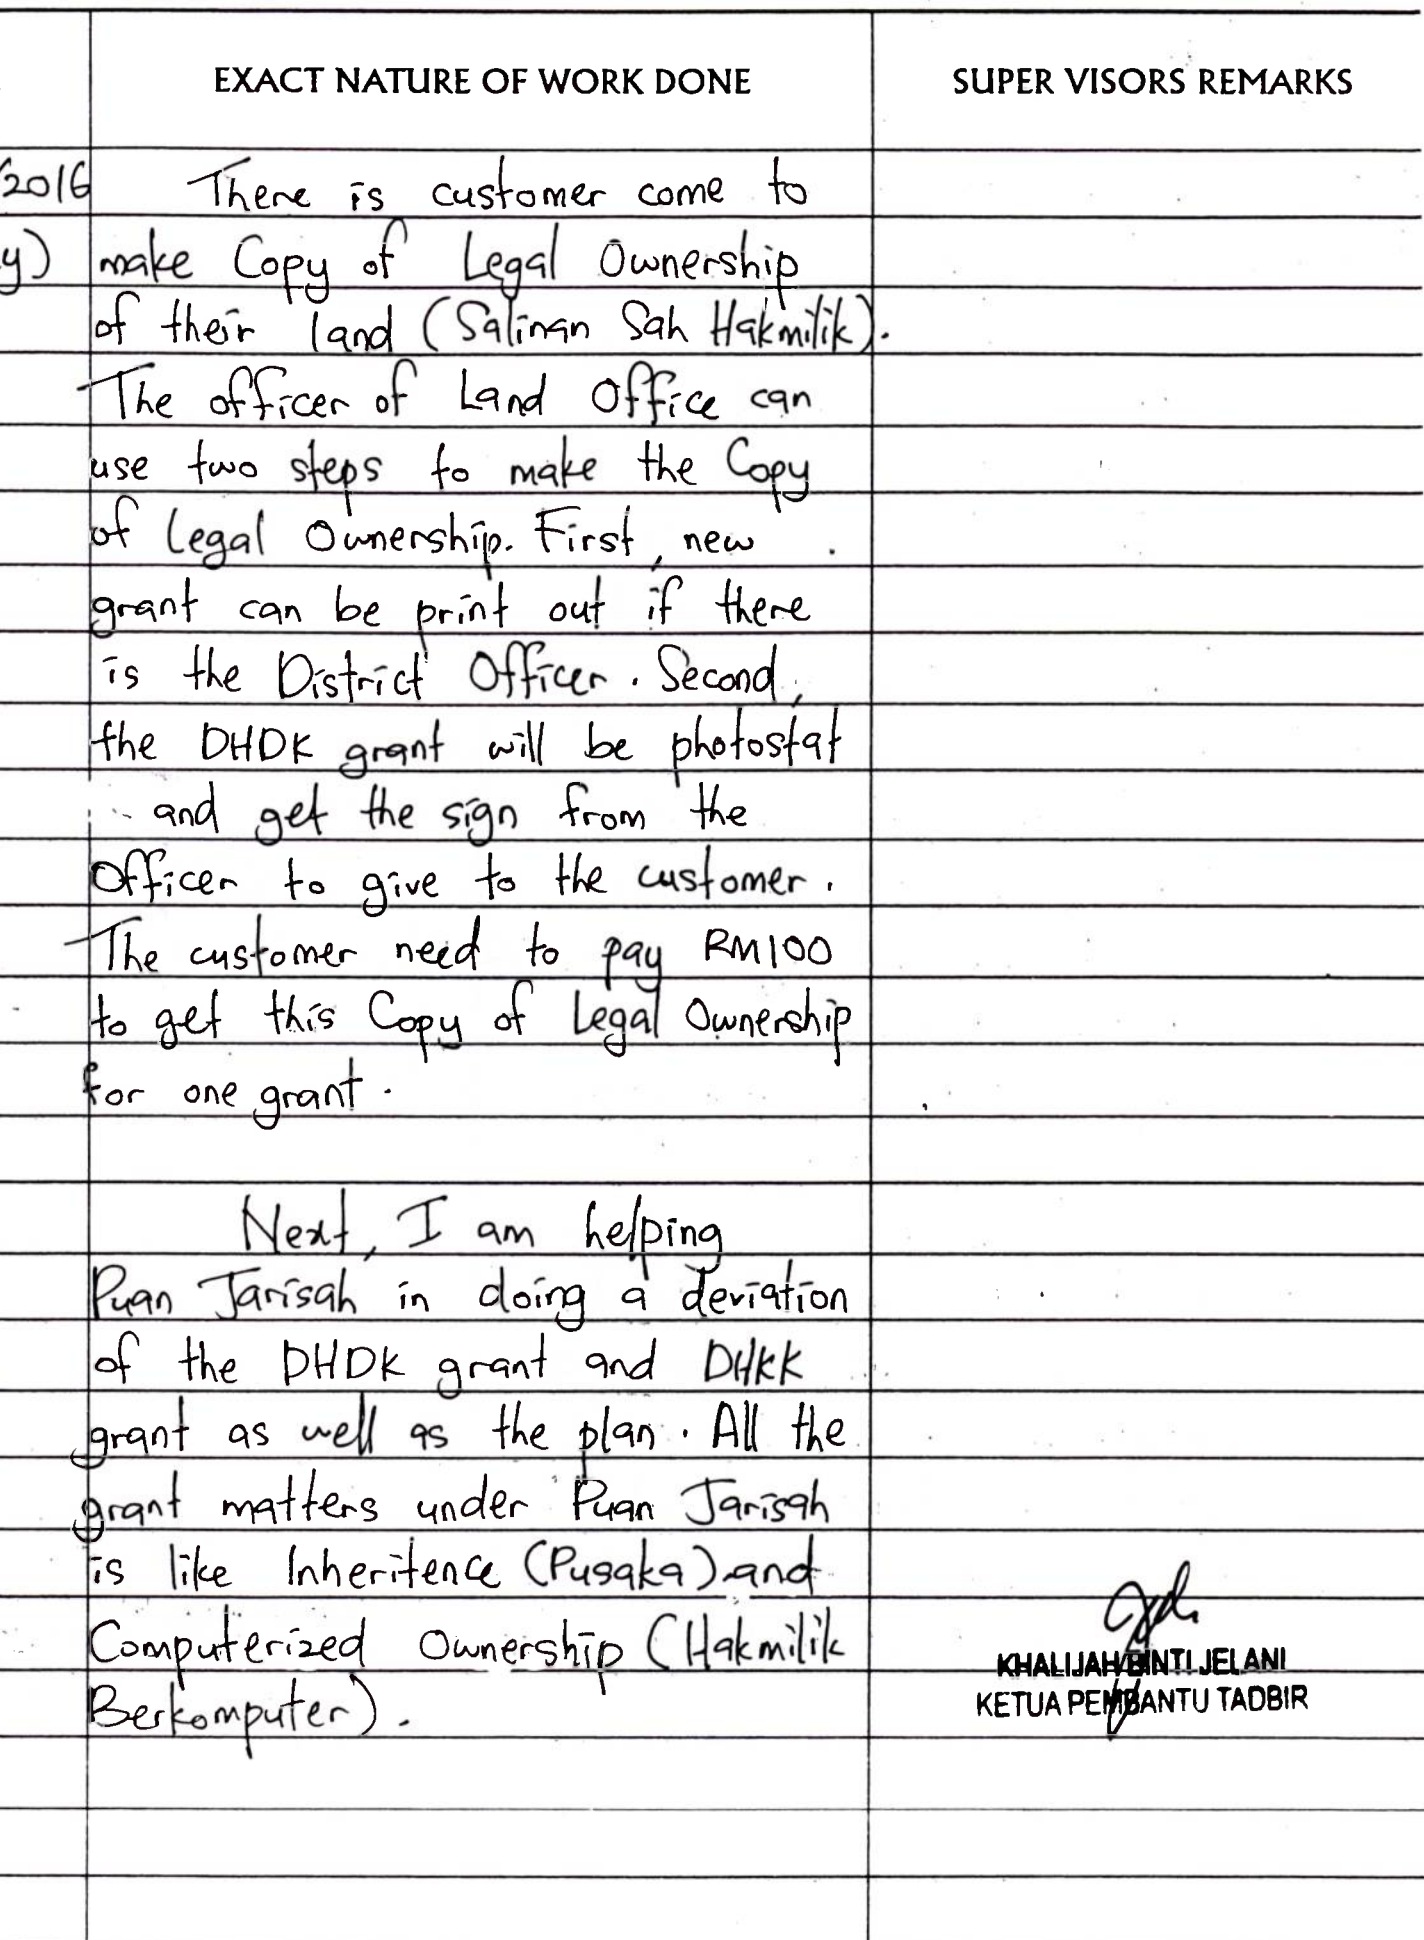 EXACT NATURE OF WORK DONE
SUPER VISORS REMARKS
/2016
There is customer come to
y)
make Copy of Legal Ownership
of their land (Salinan Sah Hakmilik).
The officer of Land Office can
use two steps to make the Copy
of Legal Ownership. First, new
grant can be print out if there
is the District Officer. Second,
the DHDK grant will be photostat
and get the sign from the
Officer to give to the customer.
The customer need to pay RM100
to get this Copy of Legal Ownership
for one grant.
Next, I am helping
Puan Jarisah in doing a deviation
of the DHDK grant and DHKK
grant as well as the plan. All the
grant matters under Puan Jarisah
is like Inheritence (Pusaka) and
Computerized Ownership (Hakmilik
Berkomputer).
KHALIJAH BINTI JELANI
KETUA PEMBANTU TADBIR